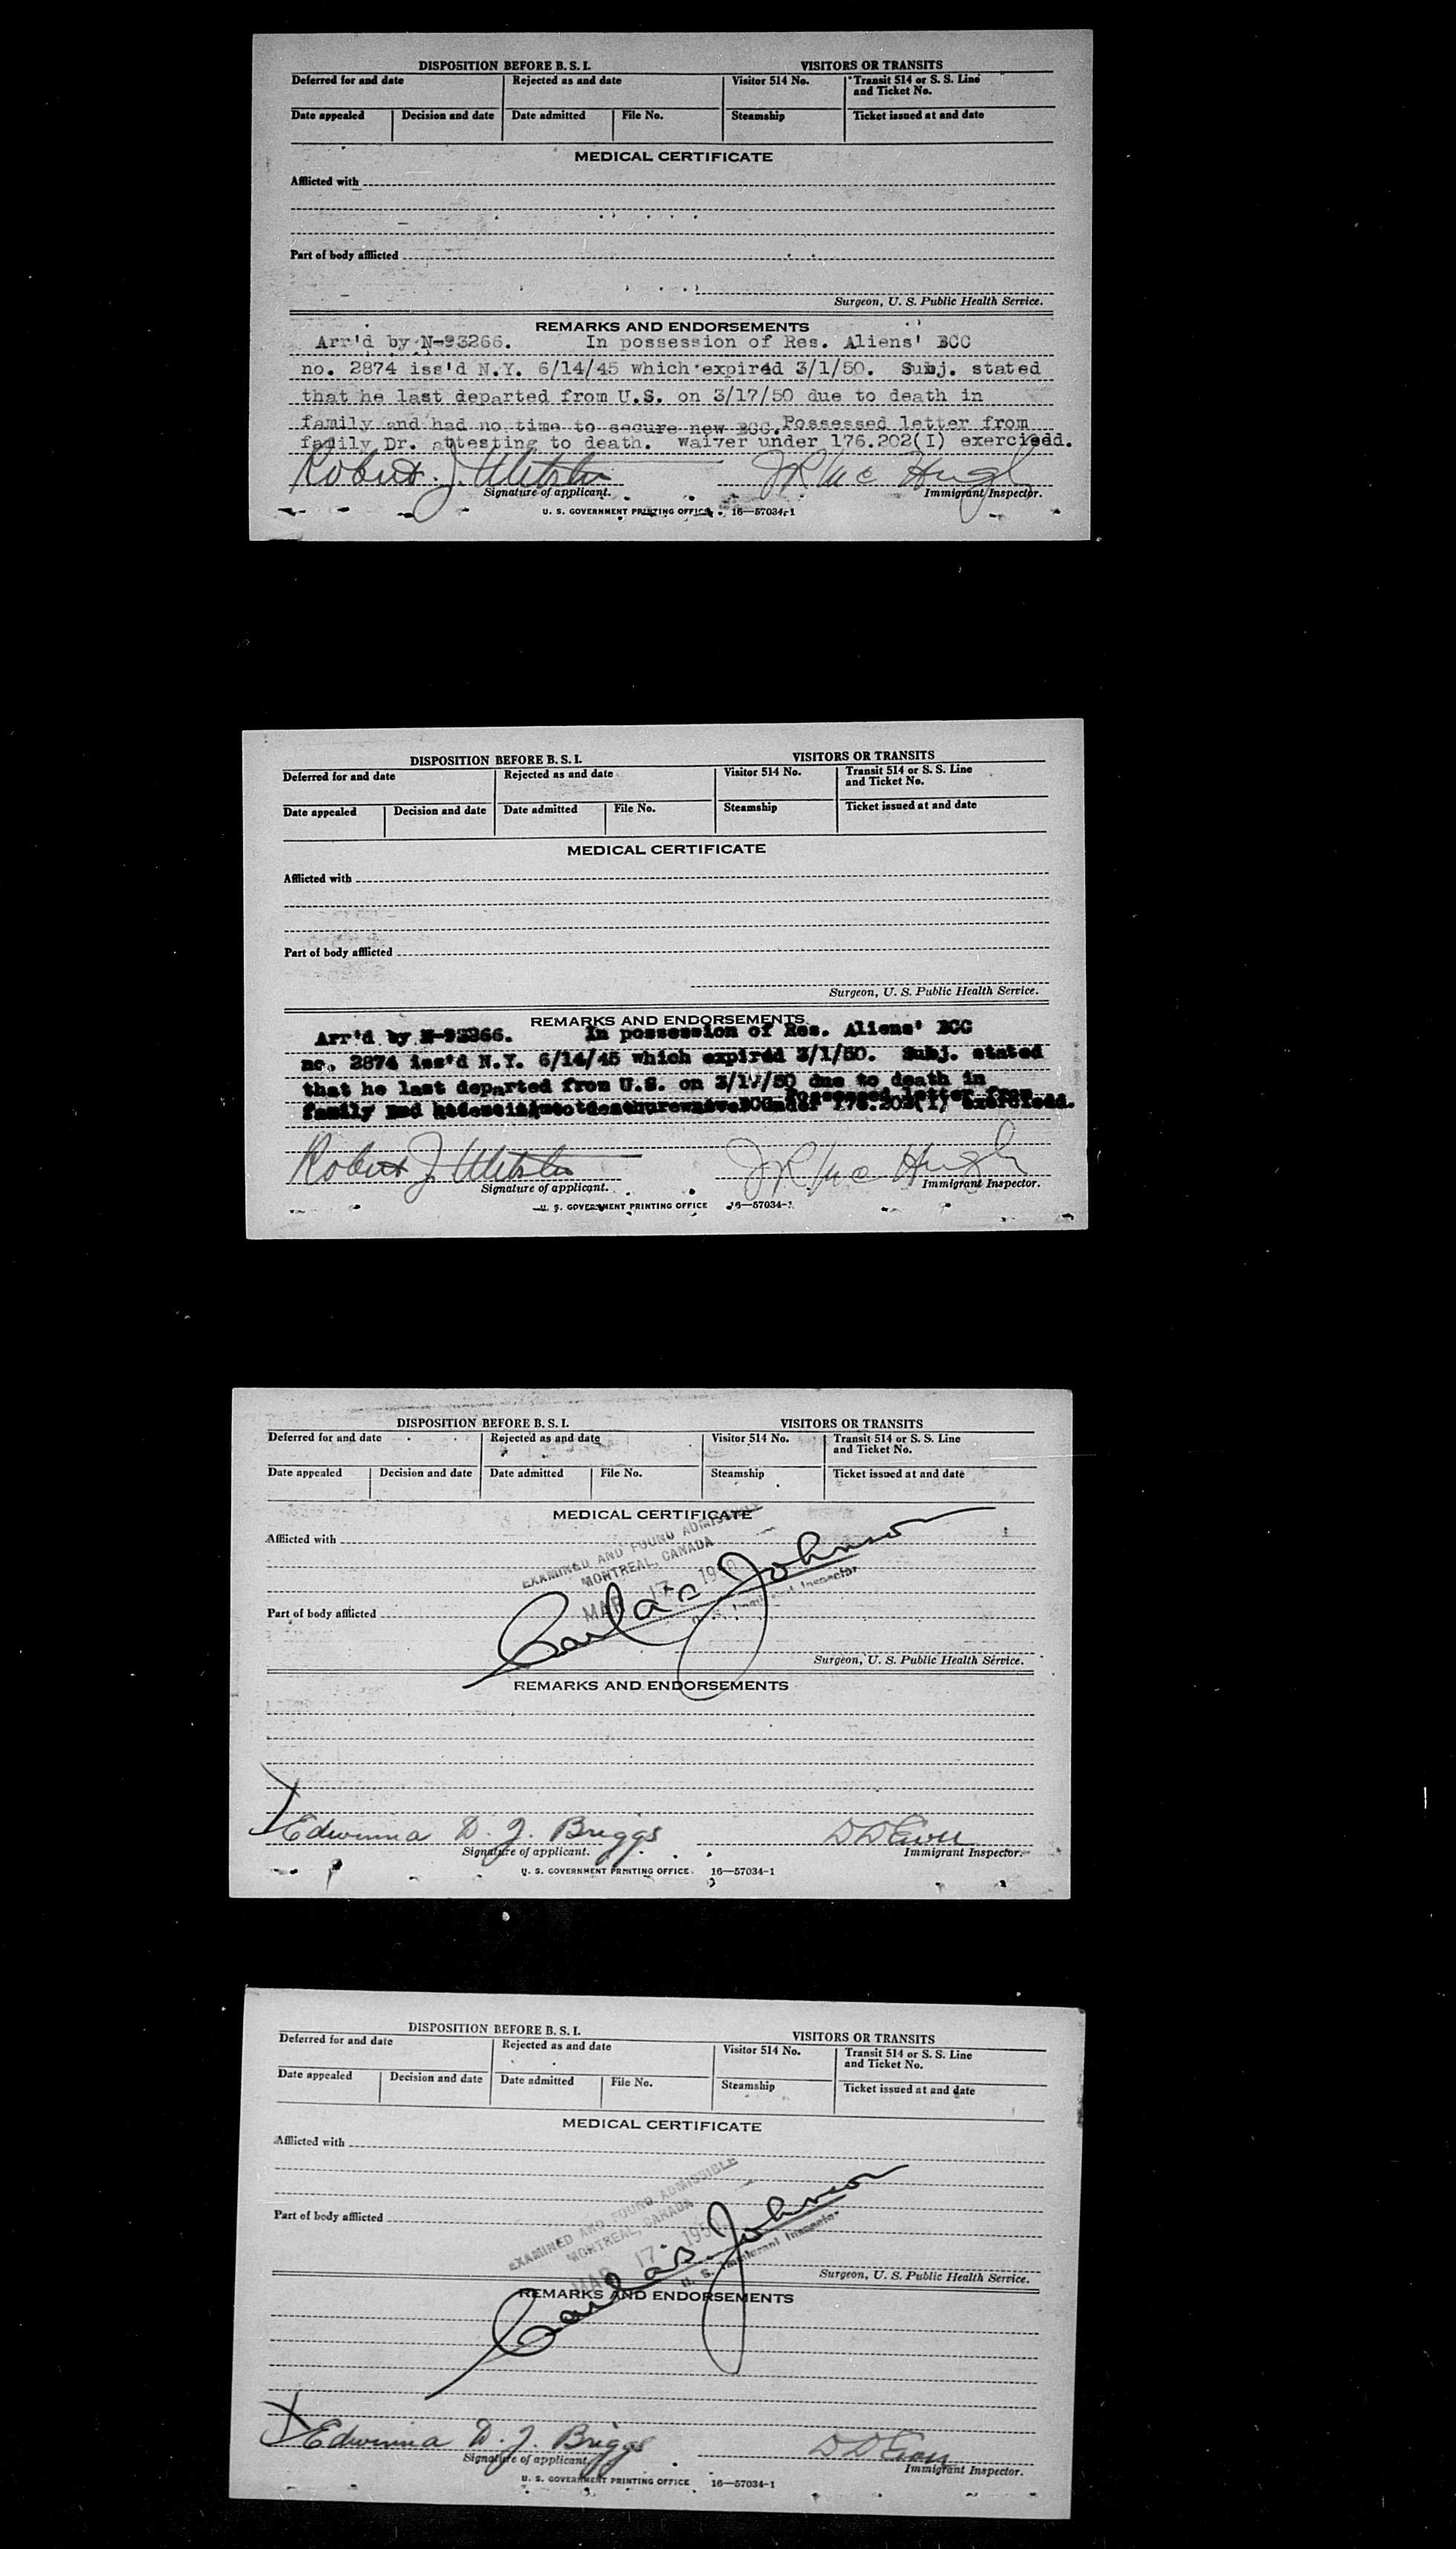 DISPOSITION BEFORE B. S. I. VISITORS OR TRANSITS
Deferred for and date Rejected as and date Visitor 514 No. Transit 514 or S. S. Line and Ticket No.
Date appealed Decision and date Date admitted File No. Steamship Ticket issued at and date
MEDICAL CERTIFICATE
Afflicted with
Part of body afflicted
Surgeon, U. S. Public Health Service.
REMARKS AND ENDORSEMENTS
Arr'd by N-93266. In possession of Res. Aliens' BCC
no. 2874 iss'd N.Y. 6/14/45 which expired 3/1/50. Subj. stated
that he last departed from U.S. on 3/17/50 due to death in
family and had no time to secure new BCC. Possessed letter from
family Dr. attesting to death. waiver under 176.202(I) exerciedd.
Robert J. Webster JR Mc Hugh
Signature of applicant. Immigrant Inspector.
U. S. GOVERNMENT PRINTING OFFICE 16—57034-1
DISPOSITION BEFORE B. S. I. VISITORS OR TRANSITS
Deferred for and date Rejected as and date Visitor 514 No. Transit 514 or S. S. Line and Ticket No.
Date appealed Decision and date Date admitted File No. Steamship Ticket issued at and date
MEDICAL CERTIFICATE
Afflicted with
Part of body afflicted
Surgeon, U. S. Public Health Service.
REMARKS AND ENDORSEMENTS
Arr'd by N-93266. In possession of Res. Aliens' BCC
no. 2874 iss'd N.Y. 6/14/45 which expired 3/1/50. Subj. stated
that he last departed from U.S. on 3/17/50 due to death in
Possessed letter from
family 176.202(I) exerciedd.
Robert J. Webster JR Mc Hugh
Signature of applicant. Immigrant Inspector.
U. S. GOVERNMENT PRINTING OFFICE 16—57034-1
DISPOSITION BEFORE B. S. I. VISITORS OR TRANSITS
Deferred for and date Rejected as and date Visitor 514 No. Transit 514 or S. S. Line and Ticket No.
Date appealed Decision and date Date admitted File No. Steamship Ticket issued at and date
MEDICAL CERTIFICATE
Afflicted with
EXAMINED AND FOUND ADMISSIBLE
MONTREAL, CANADA
MAR 17 1950
Johnson
U. S. Immigrant Inspector
Part of body afflicted
Surgeon, U. S. Public Health Service.
REMARKS AND ENDORSEMENTS
Edwinna D. J. Briggs
Signature of applicant. Immigrant Inspector.
U. S. GOVERNMENT PRINTING OFFICE 16—57034-1
DISPOSITION BEFORE B. S. I. VISITORS OR TRANSITS
Deferred for and date Rejected as and date Visitor 514 No. Transit 514 or S. S. Line and Ticket No.
Date appealed Decision and date Date admitted File No. Steamship Ticket issued at and date
MEDICAL CERTIFICATE
Afflicted with
EXAMINED AND FOUND ADMISSIBLE
MONTREAL, CANADA
MAR 17 1950
Johnson
U. S. Immigrant Inspector
Part of body afflicted
Surgeon, U. S. Public Health Service.
REMARKS AND ENDORSEMENTS
Edwinna D. J. Briggs
Signature of applicant. Immigrant Inspector.
U. S. GOVERNMENT PRINTING OFFICE 16—57034-1